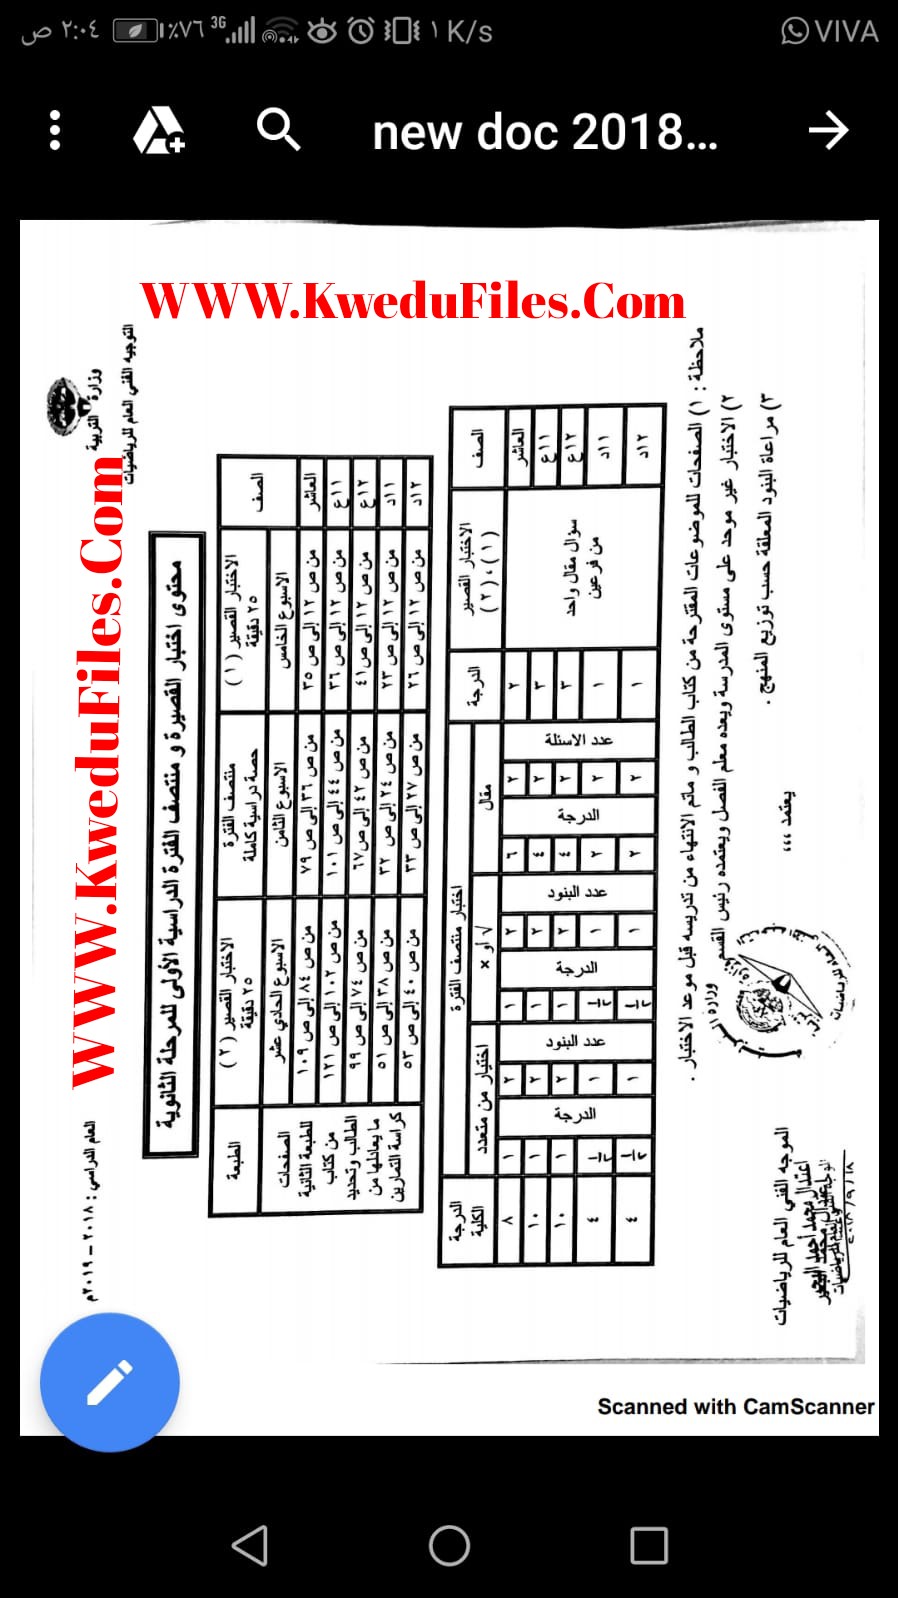 ٢:٠٤ ص
٪٧٦
3G
١ K/s
VIVA
new doc 2018...
WWW.KweduFiles.Com
WWW.KweduFiles.Com
وزارة التربية
التوجيه الفني العام للرياضيات
العام الدراسي : ٢٠١٨ – ٢٠١٩م
محتوى اختبار القصيرة و منتصف الفترة الدراسية الأولى للمرحلة الثانوية
الصف | الاختبار القصير (١) ٢٥ دقيقة | منتصف الفترة حصة دراسية كاملة | الاختبار القصير (٢) ٢٥ دقيقة | الطبعة
الاسبوع الخامس | الاسبوع الثامن | الاسبوع الحادي عشر
العاشر | من ص ١٢ إلى ص ٣٥ | من ص ٣٦ إلى ص ٧٩ | من ص ٨٤ إلى ص ١٠٩
١١ع | من ص ١٢ إلى ص ٣٦ | من ص ٤٤ إلى ص ١٠١ | من ص ١٠٢ إلى ص ١٢١
١٢ع | من ص ١٢ إلى ص ٤١ | من ص ٤٢ إلى ص ٦٧ | من ص ٧٤ إلى ص ٩٩
١١د | من ص ١٢ إلى ص ٢٣ | من ص ٢٤ إلى ص ٣٢ | من ص ٣٨ إلى ص ٥١
١٢د | من ص ١٢ إلى ص ٢٦ | من ص ٢٧ إلى ص ٣٣ | من ص ٤٠ إلى ص ٥٣
الصفحات
للطبعة الثانية
من كتاب
الطالب وتحديد
ما يعادلها من
كراسة التمارين
الصف | الاختبار القصير (١) ، (٢) | الدرجة | اختبار منتصف الفترة | الدرجة الكلية
مقال | √ أو × | اختيار من متعدد
سؤال مقال واحد
من فرعين
عدد الاسئلة | الدرجة | عدد البنود | الدرجة | عدد البنود | الدرجة
العاشر | ٢ | ٢ | ٦ | ٢ | ١ | ٢ | ١ | ٨
١١ع | ٣ | ٢ | ٤ | ٢ | ١ | ٢ | ١ | ١٠
١٢ع | ٣ | ٢ | ٤ | ٢ | ١ | ٢ | ١ | ١٠
١١د | ١ | ٢ | ٢ | ١ | ½ | ١ | ½ | ٤
١٢د | ١ | ٢ | ٢ | ١ | ½ | ١ | ½ | ٤
ملاحظة : ١) الصفحات للموضوعات المقترحة من كتاب الطالب و ماتم الانتهاء من تدريسه قبل موعد الاختبار .
٢) الاختبار غير موحد على مستوى المدرسة ويعده معلم الفصل ويعتمده رئيس القسم
٣) مراعاة البنود المعلقة حسب توزيع المنهج .
يعتمد ،،،
الموجه الفني العام للرياضيات
Scanned with CamScanner